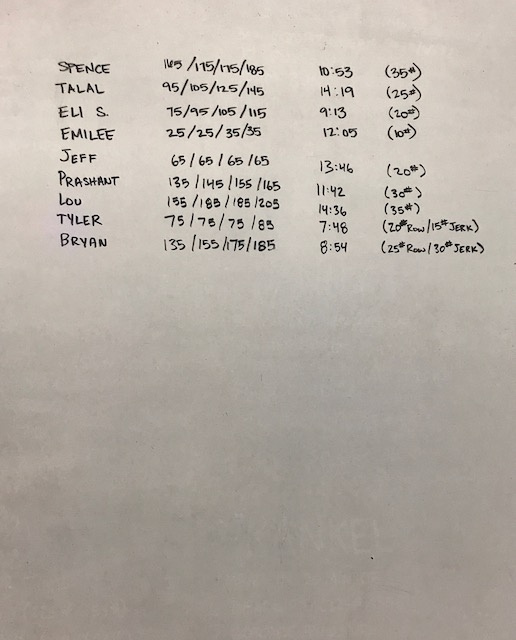 SPENCE 165/175/175/185 10:53 (35#)
TALAL 95/105/125/145 14:19 (25#)
ELI S. 75/95/105/115 9:13 (20#)
EMILEE 25/25/35/35 12:05 (10#)
JEFF 65/65/65/65 13:46 (20#)
PRASHANT 135/145/155/165 11:42 (30#)
LOU 155/185/185/205 14:36 (35#)
TYLER 75/75/75/85 7:48 (20# ROW/15# JERK)
BRYAN 135/155/175/185 8:54 (25# ROW/30# JERK)